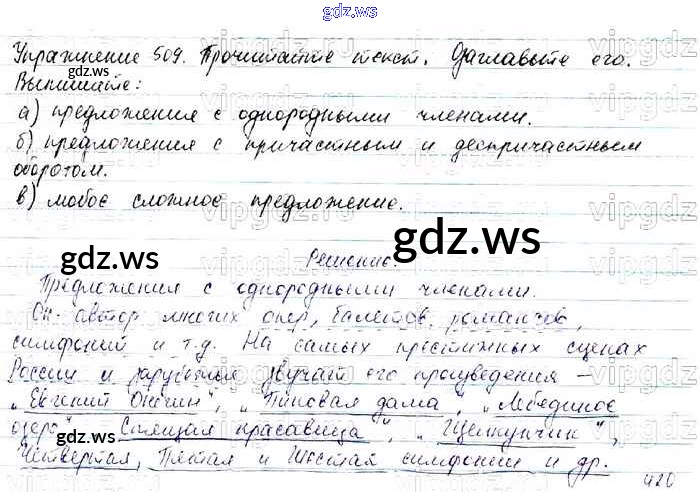 gdz.ws
Упражнение 509. Прочитайте текст. Озаглавьте его.
Выпишите:
а) предложения с однородными членами.
б) предложения с причастным и деепричастным
оборотом.
в) любое сложное предложение.
gdz.ws
gdz.ws
Решение.
Предложения с однородными членами.
Он автор многих опер, балетов, романсов,
симфоний и т.д. На самых престижных сценах
России и зарубежья звучат его произведения –
„Евгений Онегин", „Пиковая дама", „Лебединое
озеро", Спящая красавица", „Щелкунчик",
Четвертая, Пятая и Шестая симфонии и др.
gdz.ws
420
vipgdz.ru